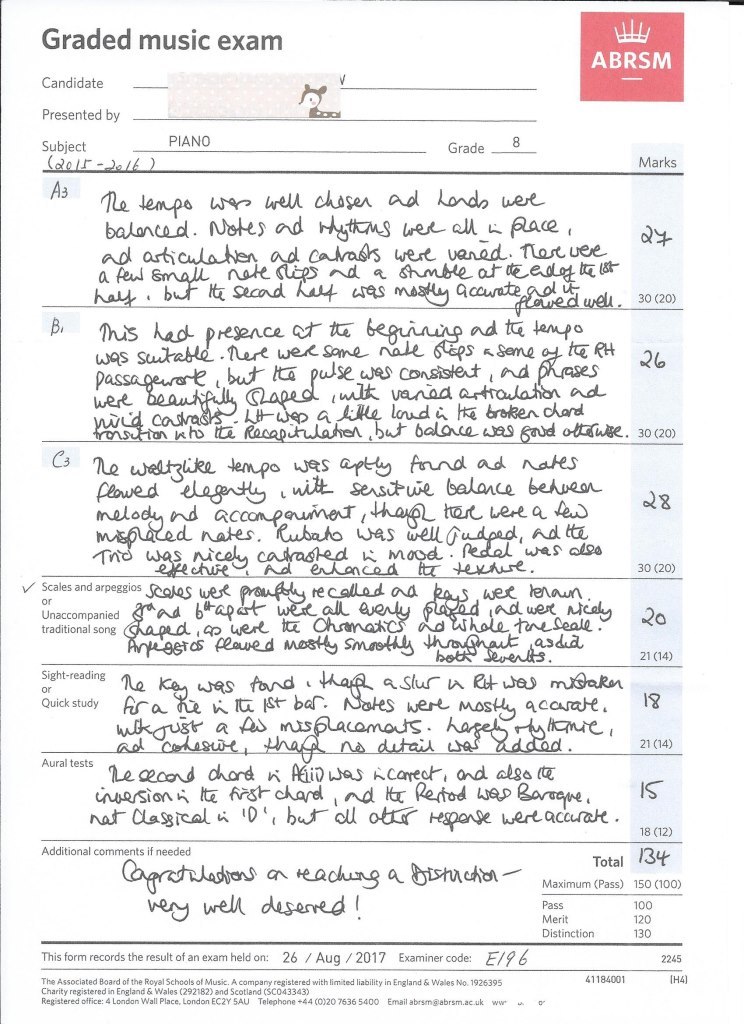 Graded music exam
ABRSM
Candidate
Presented by
Subject PIANO Grade 8
(2015-2016)
Marks
A3 The tempo was well chosen and hands were
balanced. Notes and rhythms were all in place,
and articulation and contrasts were varied. There were
a few small note slips and a stumble at the end of the 1st
half, but the second half was mostly accurate and it
flowed well.
27
30 (20)
B1 This had presence at the beginning and the tempo
was suitable. There were some note slips in some of the RH
passagework, but the pulse was consistent, and phrases
were beautifully shaped, with varied articulation and
vivid contrasts. LH was a little loud in the broken chord
transition into the Recapitulation, but balance was good otherwise.
26
30 (20)
C3 The waltzlike tempo was aptly found and notes
flowed elegantly, with sensitive balance between
melody and accompaniment, though there were a few
misplaced notes. Rubato was well judged, and the
Trio was nicely contrasted in mood. Pedal was also
effective, and enhanced the texture.
28
30 (20)
✓ Scales and arpeggios
or
Unaccompanied
traditional song
Scales were promptly recalled and keys were known.
3rd and 6th apart were all evenly played, and were nicely
shaped, as were the Chromatics and Whole tone scale.
Arpeggios flowed mostly smoothly throughout, as did
both sevenths.
20
21 (14)
Sight-reading
or
Quick study
The key was found, though a slur in RH was mistaken
for a tie in the 1st bar. Notes were mostly accurate,
with just a few misplacements. Largely rhythmic,
and cohesive, though no detail was added.
18
21 (14)
Aural tests
The second chord in Aiii was incorrect, and also the
inversion in the first chord, and the Period was Baroque,
not Classical in 'D', but all other response were accurate.
15
18 (12)
Additional comments if needed
Congratulations on reaching a Distinction –
very well deserved!
Total 134
Maximum (Pass) 150 (100)
Pass 100
Merit 120
Distinction 130
This form records the result of an exam held on: 26 / Aug / 2017 Examiner code: E196 2245
The Associated Board of the Royal Schools of Music. A company registered with limited liability in England & Wales No. 1926395 41184001 (H4)
Charity registered in England & Wales (292182) and Scotland (SC043343)
Registered office: 4 London Wall Place, London EC2Y 5AU Telephone +44 (0)20 7636 5400 Email abrsm@abrsm.ac.uk